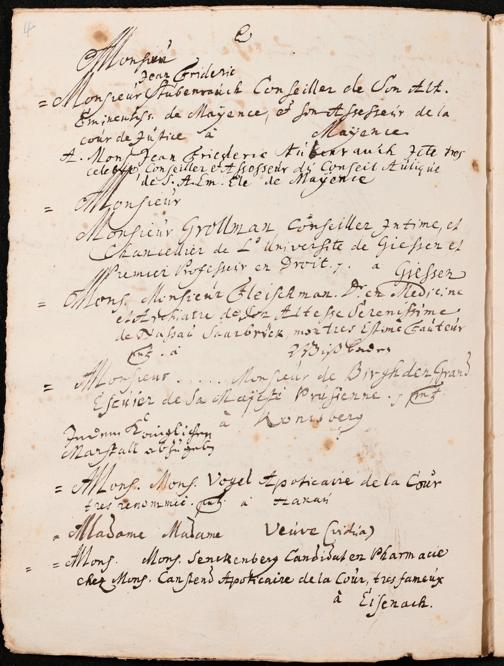 4
Monsieur
Jean Frideric
= Monsieur Stubenrauch Conseiller de Son Alt.
Eminentiss. de Mayence, et son Assesseur de la
cour de Justice à Mayence
A. Mons. Jean Friederic Stubenrauch Jcte tres
celebre, Conseiller et Assesseur du Conseil Aulique
de S. A. Em. Ele de Mayence
= Monsieur
Monsieur Grollman, Conseiller Intime, et
Chancellier de L'Universite de Giessen et
Premier Professeur en Droit. à Giessen
= Mons. Monsieur Fleischman. Dr. en Medicine
et Archiatre de Son Altesse Serenissime
de Nassau Saarbrück, mon tres Estimé Fauteur
à
= Monsieur ..... Monsieur de Birghden Grand
Escuier de Sa Majesté Prusienne.
à Konigsberg
In dem Königlichen
Marstall abzugeben
= Mons. Mons. Vogel Apoticaire de la Cour
tres renommé. à Hanau
= Madame Madame Veuve
= Mons. Mons. Senckenberg Candidat en Pharmacie
chez Mons. Canstend Apoticaire de la Cour, tres fameux
à Eisenach.